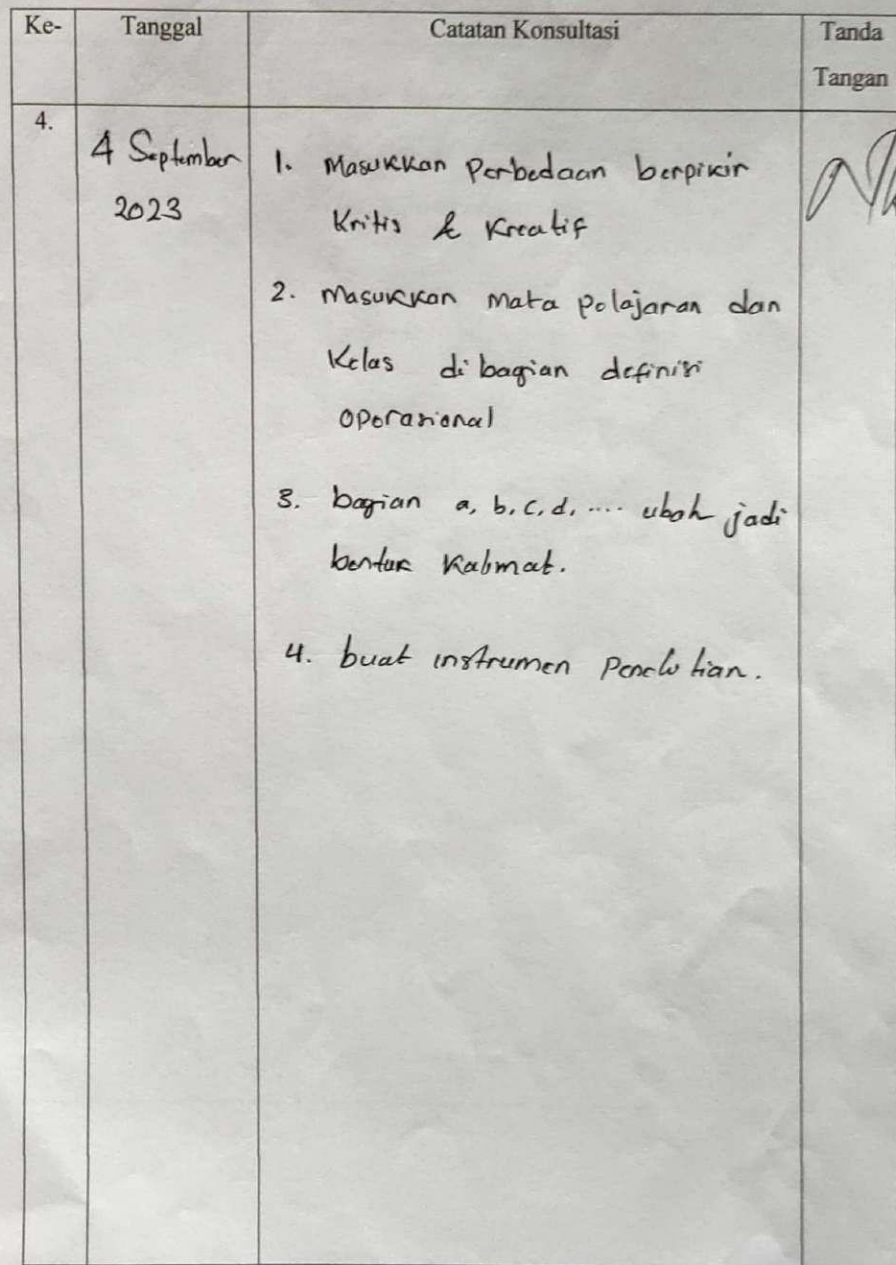 Ke- Tanggal Catatan Konsultasi Tanda
Tangan
4.
4 September
2023
1. Masukkan Perbedaan berpikir
Kritis & Kreatif
2. Masukkan Mata pelajaran dan
Kelas di bagian definisi
operasional
3. bagian a, b, c, d, .... ubah jadi
bentuk Kalimat.
4. buat instrumen Penelitian.